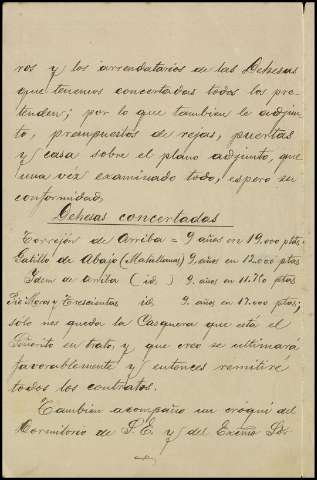 ros y los arrendatarios de las Dehesas
que tenemos concertadas todos los pre-
tenden; por lo que tambien le adjun-
to, presupuestos de rejas, puertas
y casa sobre el plano adjunto, que
una vez examinado todo, espero su
conformidad,
Dehesas concertadas
Torrejón de Arriba = 9 años en 19.000 ptas.
Catillo de Abajo (Matallanas) 9 años en 12.000 ptas
Idem de arriba (id.) 9. años en 11.750 ptas
Moras y Trescientas id. 9. años en 17.000 ptas;
sólo nos queda la Casquera que está el
Señorito en trato, y que creo se ultimará
favorablemente y entonces remitiré
todos los contratos.
Tambien acompaño un cróqui del
Dormitorio de S.E. y del Excmo Sór